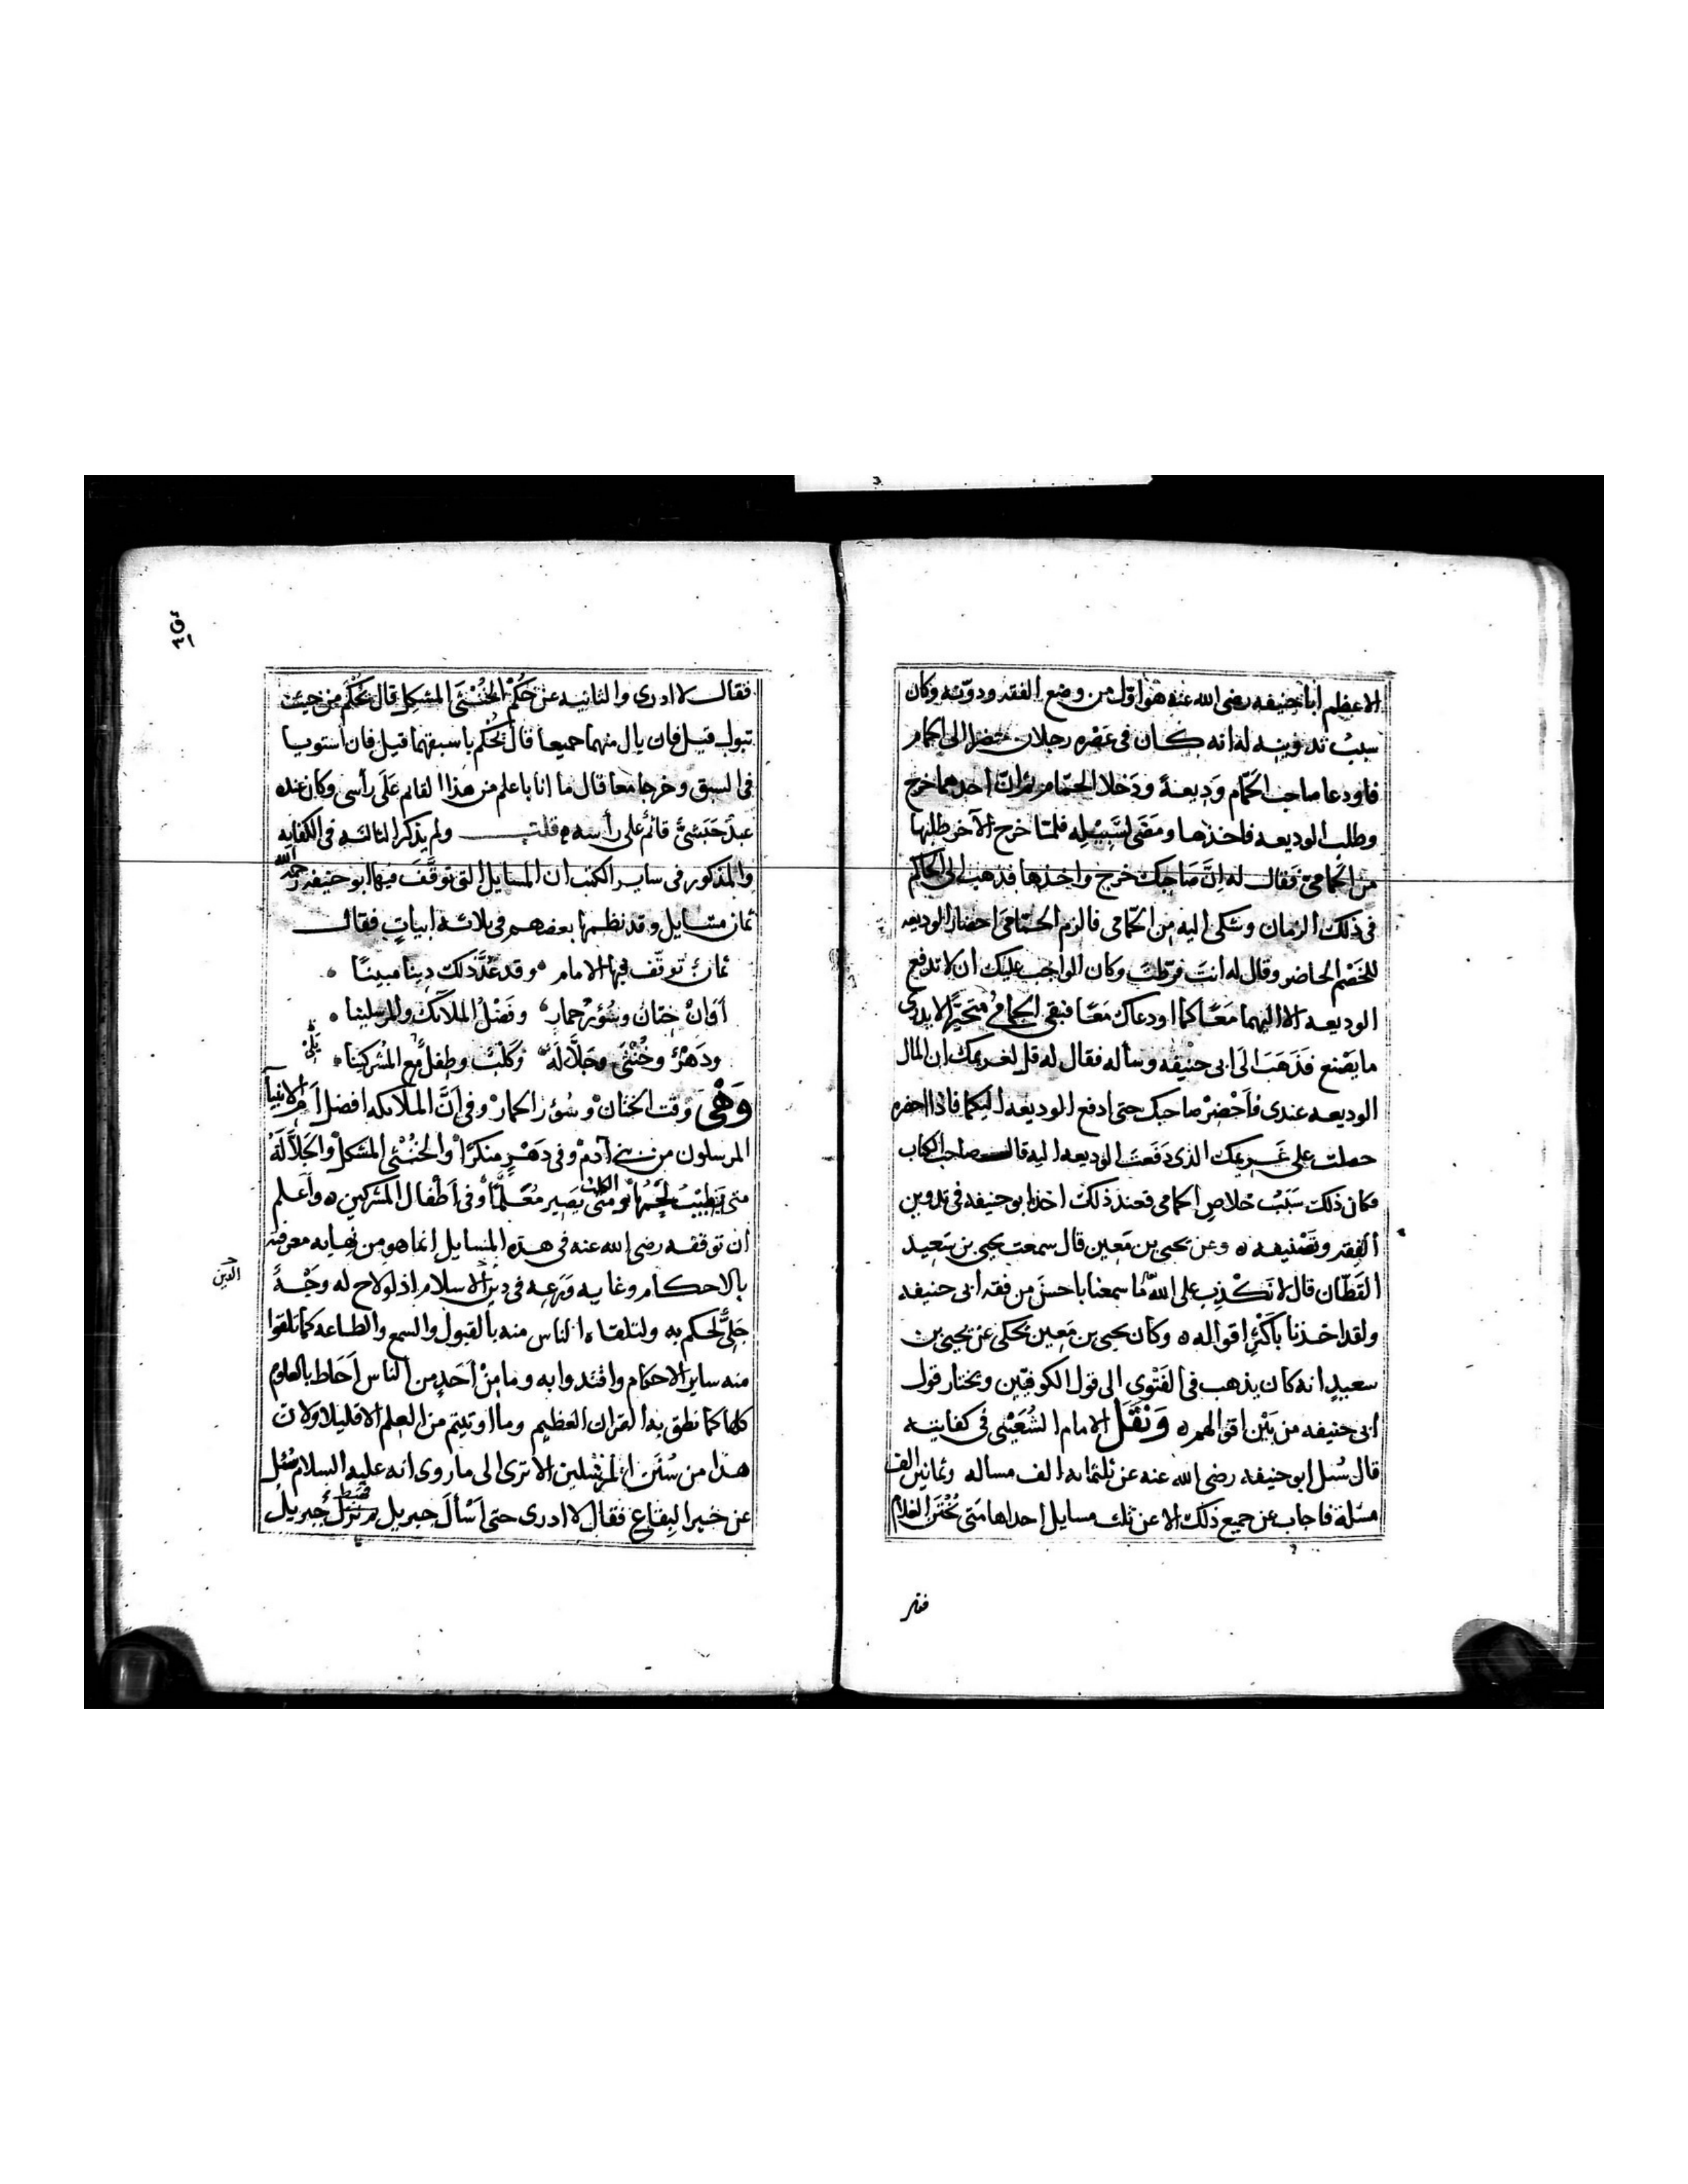 الاعظم ابا حنيفه رضى الله عنه هو اول من وضع الفقه ودونه وكان
سبب تدوينه له انه كان فى عصره رجلان حضرا الى الحمام
فاودعا صاحب الحمّام وَدِيعةً ودَخلا الحمّام ثم ان احدهما خرج
وطلب الوديعه فاخذها ومَضَى لسَبِيْلِه فلمّا خرج الآخر طلبها
من الحمامى فقال له اِنَّ صَاحِبك خرج واخذها فذهب الى الحاكم
فى ذلك الزمان وشكى اليه من الحمّامى فالزم الحمّامى احضار الوديعه
للخَصْم الحاضر وقال له انت فرّطت وكان الواجب عليك ان لا تدفع
الوديعه الا اليهما مَعًا كما اودعاك مَعًا فبقى الحمامى متحيّرًا لا يدرى
ما يَصْنع فذَهَبَ الَى ابى حنيفه وسأله فقال له قل لغريمك ان المال
الوديعه عندى فاَحْضِرْ صاحبك حتى ادفع الوديعه اليكما فاذا احضره
حصلت على غريمك الذى دَفعتَ الوديعه اليه قال صاحب الكتاب
فكان ذلك سَبَبُ خلاصِ الحمامى فعند ذلك اخذ ابو حنيفه فى تدوين
الفِقه وتَصْنيفه ه وعن يحيى بن مَعِين قال سمعت يحيى بن سَعِيد
القَطّان قال لا نَكْذِب على اللهِ ما سمعنا باحسنَ من فقه ابى حنيفه
ولقد اخذنا بأكثرِ اقواله ه وكان يحيى بن مَعِين يحكى عن يحيى بن
سعيدٍ انه كان يذهب فى الفَتْوى الى قول الكوفيّين ويختار قول
ابى حنيفه من بَيْن اقوالهم ه وَنقَل الامام الشُعَيْبى فى كفايته
قال سُئل ابو حنيفه رضى الله عنه عن ثلثمايه الف مساله وثمانين الف
مسئلة فاجاب عن جميع ذلك الا عن ثلث مسايل احداها مَتى يُخْتَن الغلام
فقال
ق
٣١
فقال لا ادرى والثانيه عن حُكْم الخُنْثَى المشكل قال يُحْكَم من حيث
تبول قيل فان بال منهما جميعا قال يُحْكم باسبقهما قيل فان استويا
فى السبق وخرجا معا قال ما انا باعلم من هذا القايم عَلَى رأسى وكان عنده
عبدٌ حَبَشىٌّ قائمٌ على رأسه ه قلت ولم يذكر الثالثه فى الكفايه
والمذكور فى ساير الكتب ان المسايل التى توقّفَ فيها ابو حنيفه رحمه الله
ثمان مسايل وقد نظمها بعضهم فى ثلاثه ابياتٍ فقال
ثمانٌ توقّف فيها الامام ه وقد عُدَّ ذلك دِينا مبينًا ه
اَوَانُ خِتانٍ وسُؤرُ حمارٍ ه وفَضْلُ الملائك والمرسلينا ه
ودَهْرٌ وخُنْثَى وجَلّالهٌ ه وكَلْبٌ وطِفلٌ مع المُشركينا ه
وَهْى وَقت الختان وسُؤر الحمار وفى اَنَّ الملائكه افضل اَم الانبيآ
المرسلون من بنى آدم وفى دَهْرٍ منكرًا والخُنْثى المشكل والجَلاَّلَة
متى يَطِيْبُ لَحْمُها ومتى يَصِير الكلب مُعَلّمًا وفى اَطْفال المشركين ه واَعلم
ان توقفه رضى الله عنه فى هذه المسايل انما هو من نهايه معرفته
الدين
بالاحكام وغايه وَرَعِه فى دين الاسلام اذ لو لاح له وَجْهٌ
جَلِىٌّ لحكم به ولتلقاه الناس منه بالقبول والسمع والطاعه كما تلقوا
منه ساير الاحكام واقتدوا به وما مِنْ اَحَدٍ من الناس اَحَاط بالعلوم
كلها كما نطق به القران العظيم وما اوتيتم من العلم الا قليلا ولان
هذا من سُنَن المرسلين الا ترى الى ما روى انه عليه السلام سُئِل
عن خير البِقاع فقال لا ادرى حتى اَسْألَ جبريل ثم نزل جبريل